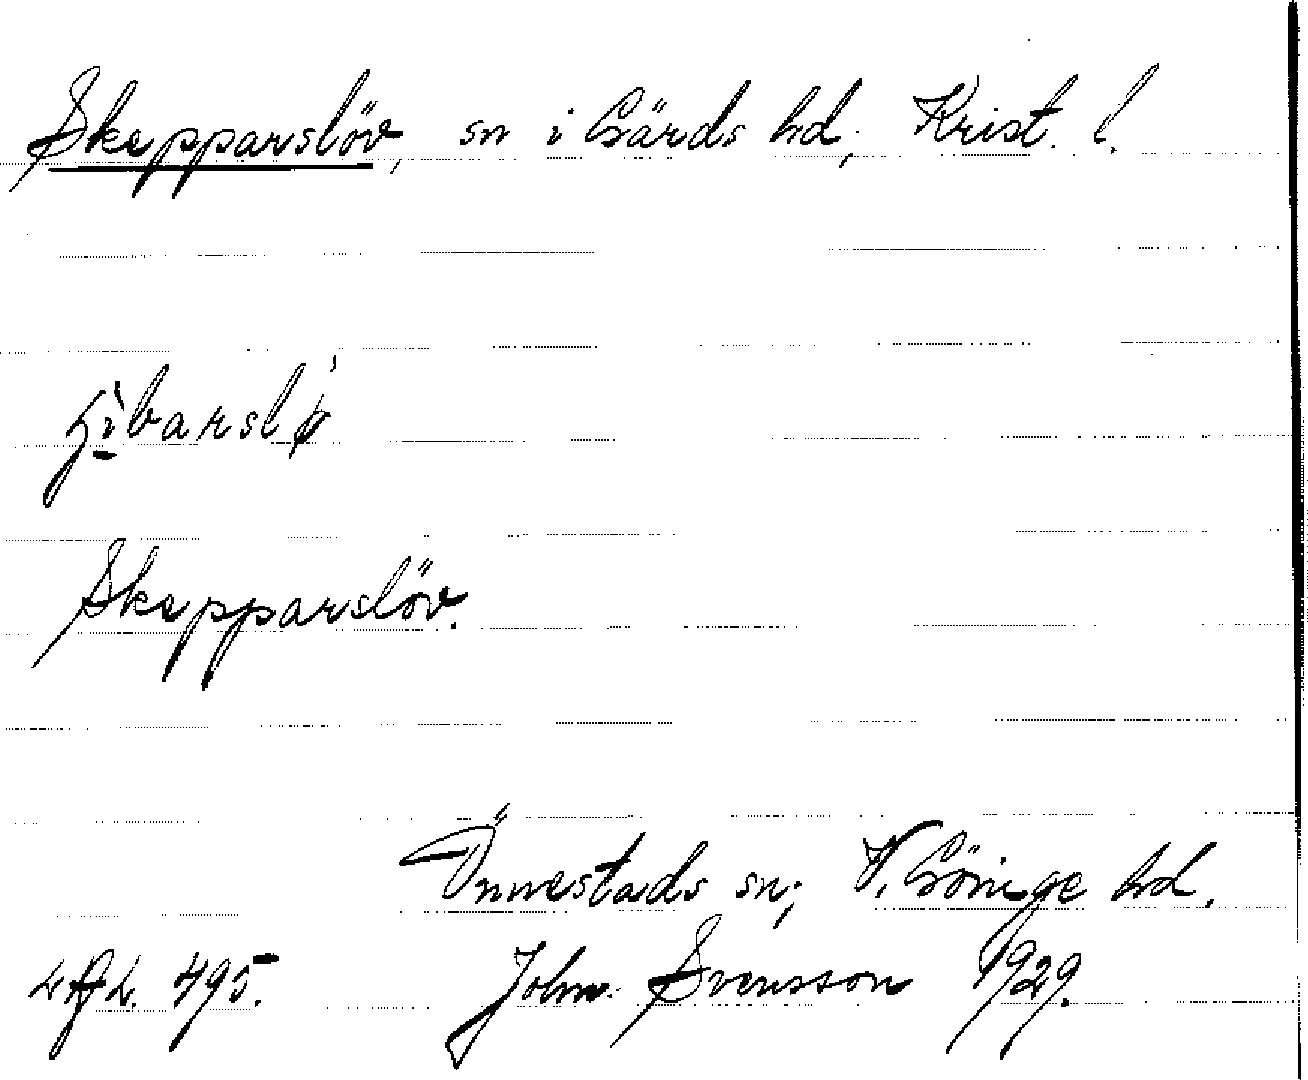 Skepparslöv, sn i Gärds hd, Krist. l.
Skepparslöv.
Önnestads sn, V. Göinge hd.
LAL. 495. John Svensson 1929.